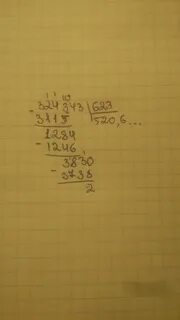 1 1 10
- 324343 | 623
3115 | 520,6...
1284
- 1246
3830
- 3738
2